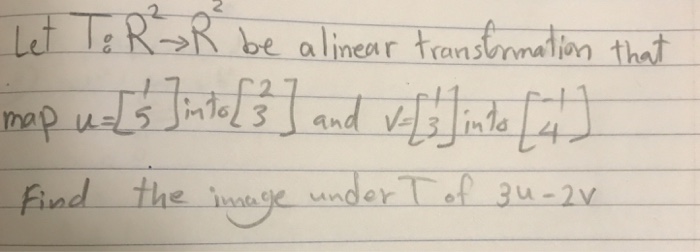 Let T: R² → R² be a linear transformation that
map u = [1 5] into [2 3] and v = [1 3] into [-1 4]
Find the image under T of 3u - 2v